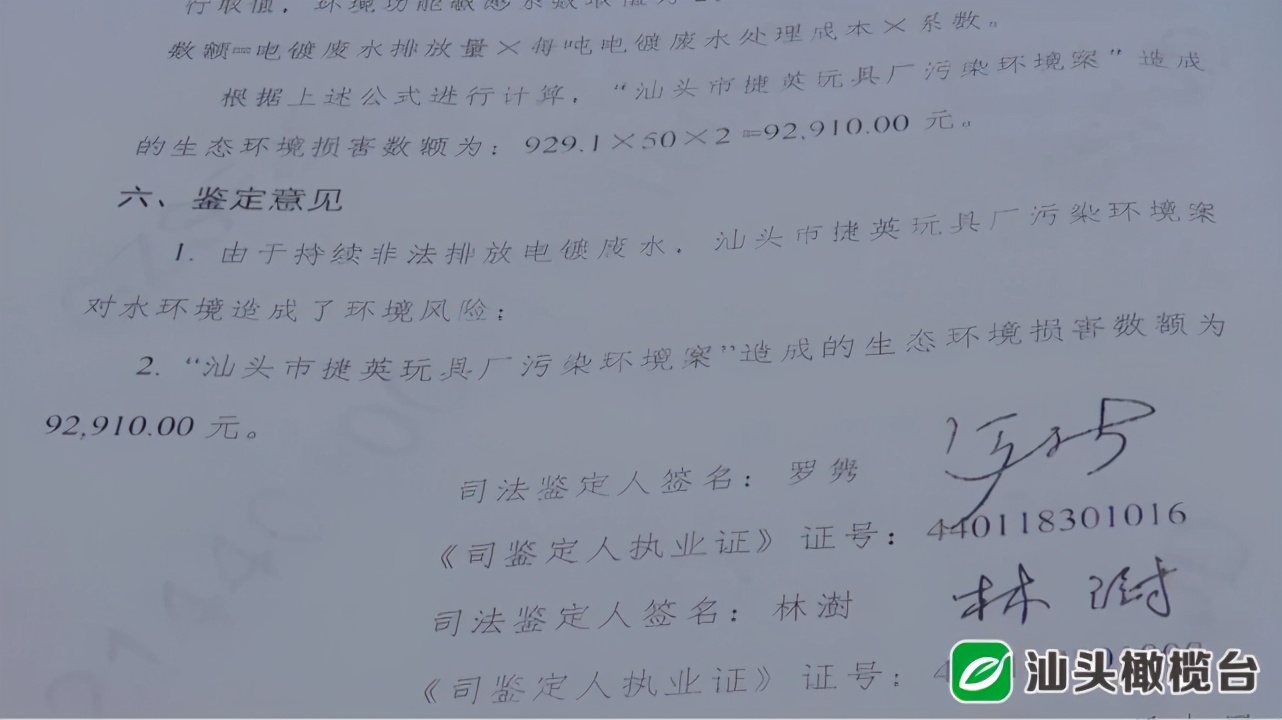 行取值，环境功能敏感系数取值为2。
数额=电镀废水排放量×每吨电镀废水处理成本×系数。
根据上述公式进行计算，“汕头市捷英玩具厂污染环境案”造成
的生态环境损害数额为：929.1×50×2=92,910.00 元。
六、鉴定意见
1. 由于持续非法排放电镀废水，汕头市捷英玩具厂污染环境案
对水环境造成了环境风险；
2. “汕头市捷英玩具厂污染环境案”造成的生态环境损害数额为
92,910.00 元。
司法鉴定人签名：罗隽
《司鉴定人执业证》证号：440118301016
司法鉴定人签名：林澍 林澍
《司鉴定人执业证》证号：
汕头橄榄台